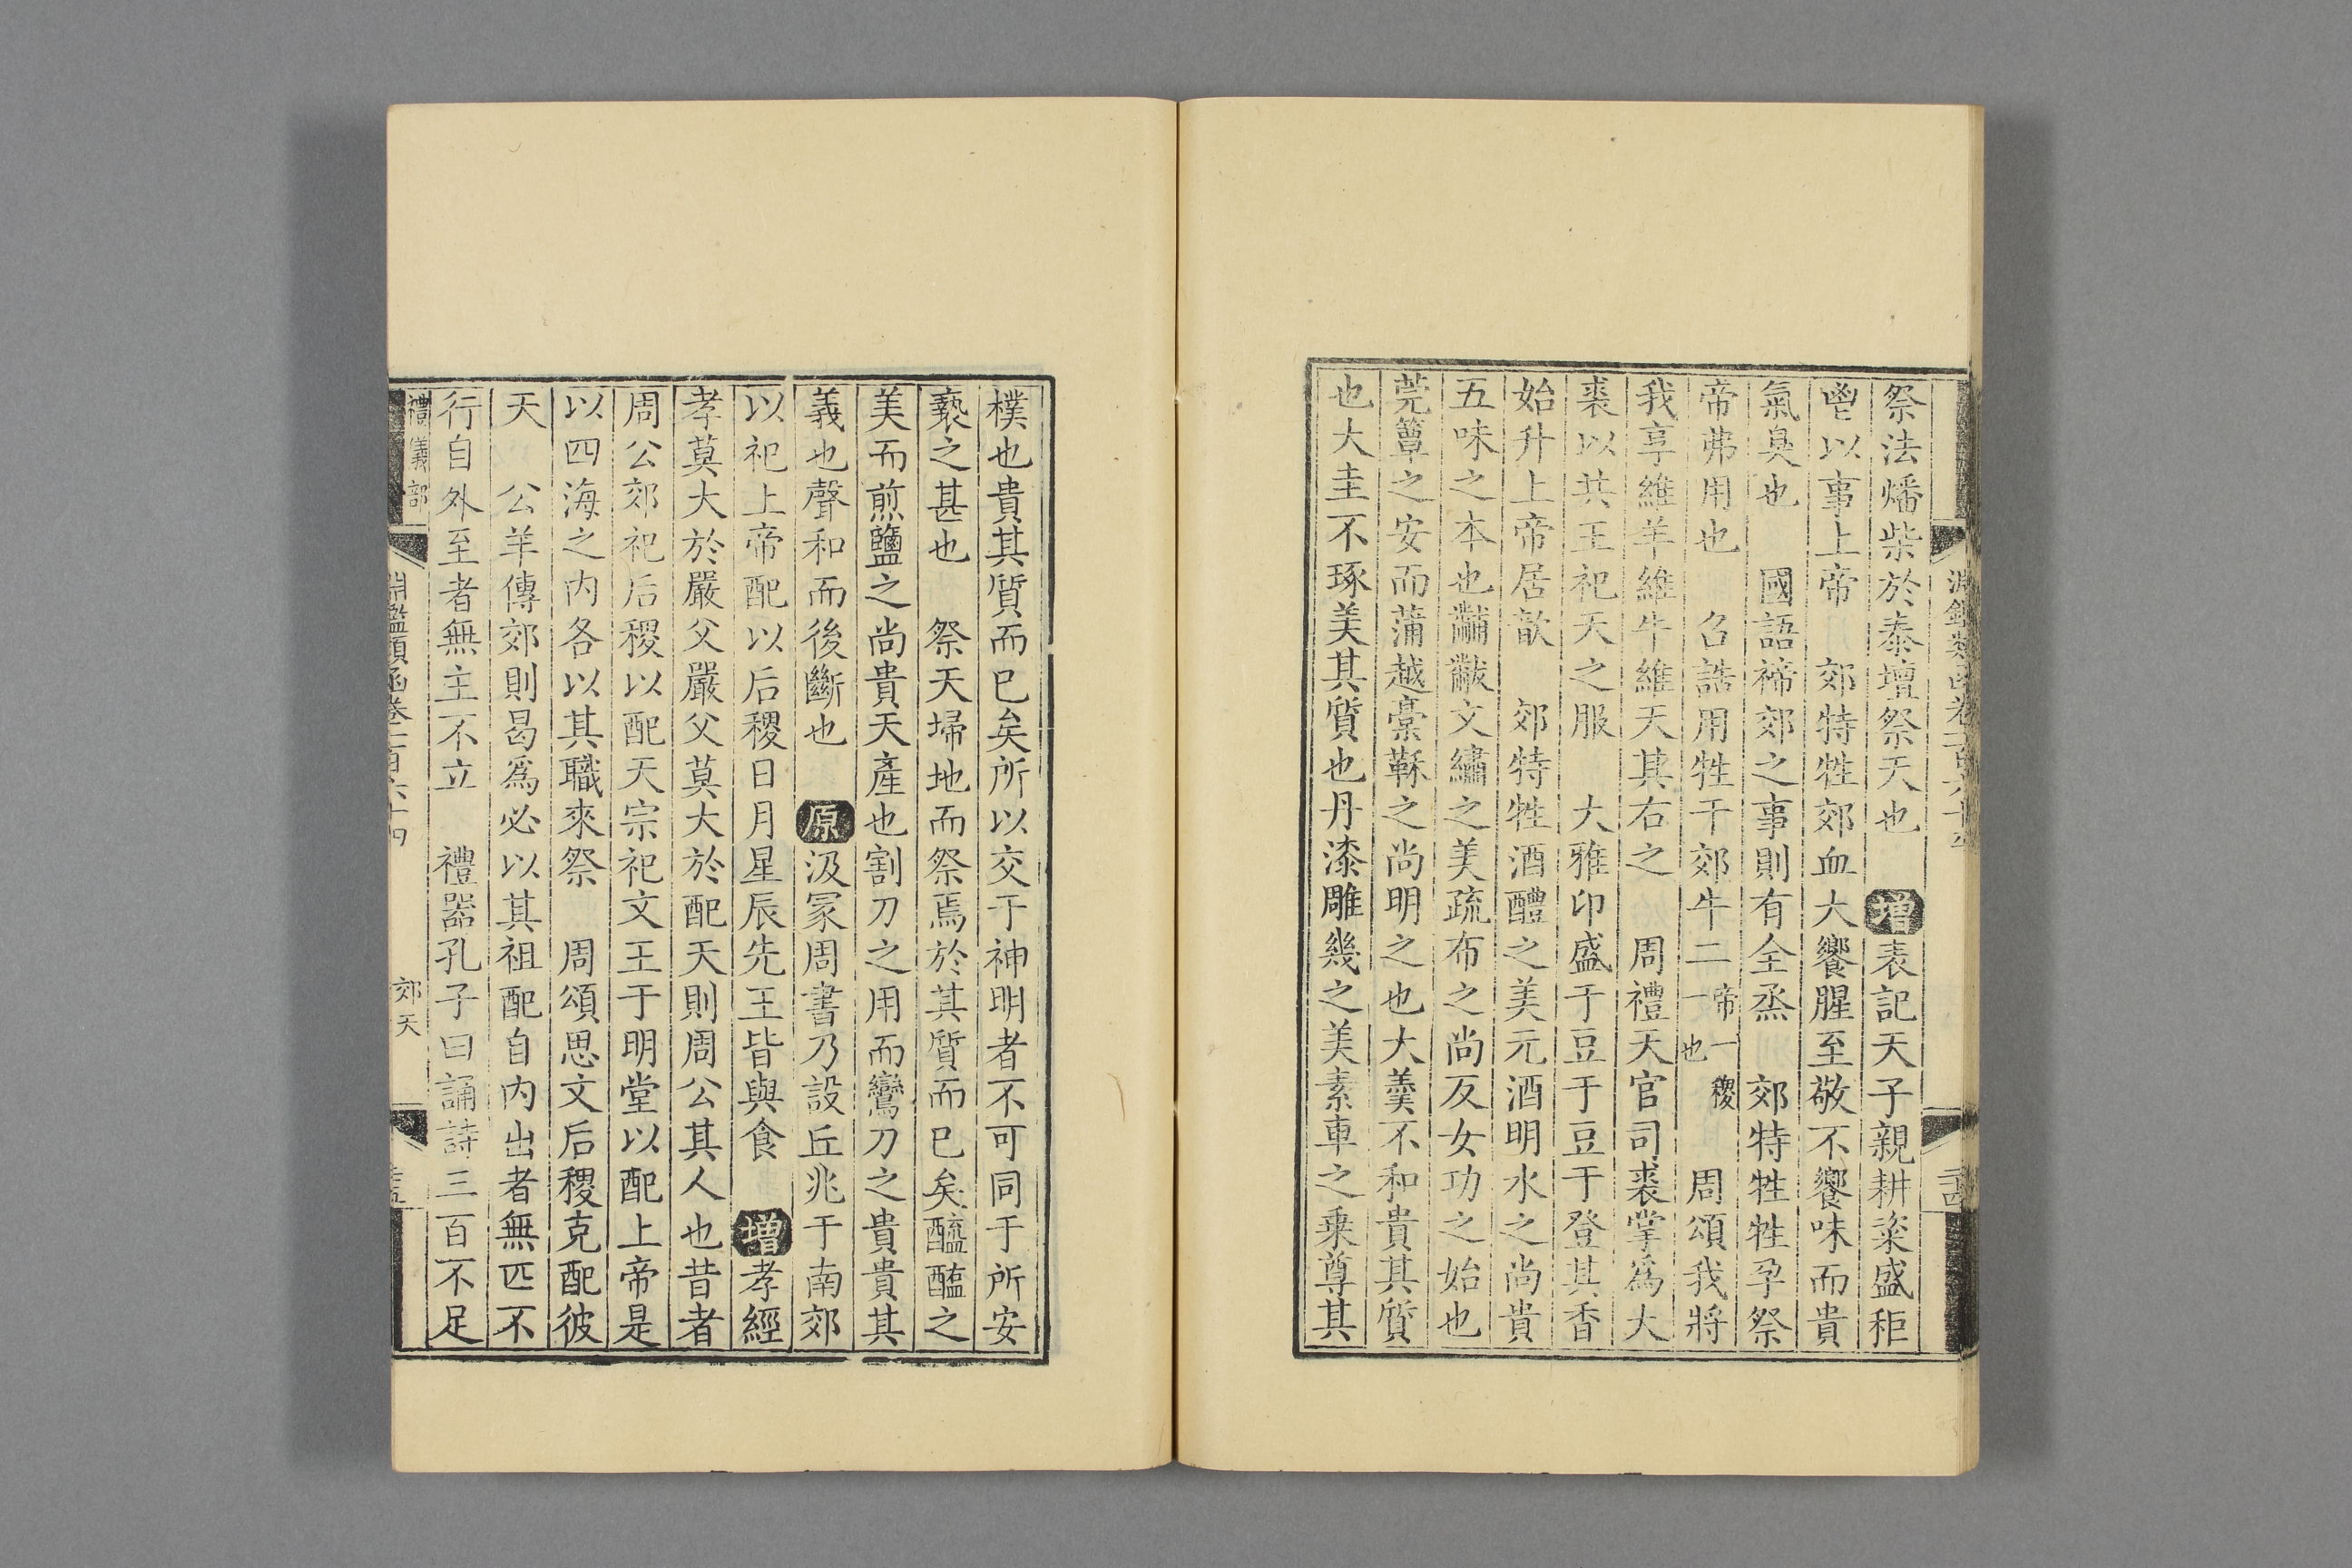 祭法燔柴於泰壇祭天也 增表記天子親耕粢盛秬
鬯以事上帝 郊特牲郊血大饗腥至敬不饗味而貴
氣臭也 國語禘郊之事則有全烝 郊特牲牲孕祭
帝弗用也 召誥用牲于郊牛二帝一稷一也 周頌我將
我享維羊維牛維天其右之 周禮天官司裘掌爲大
裘以共王祀天之服 大雅卬盛于豆于豆于登其香
始升上帝居歆 郊特牲酒醴之美元酒明水之尚貴
五味之本也黼黻文繡之美疏布之尚反女功之始也
莞簟之安而蒲越槀鞂之尚明之也大羹不和貴其質
也大圭不琢美其質也丹漆雕幾之美素車之乗尊其
樸也貴其質而已矣所以交于神明者不可同于所安
褻之甚也 祭天埽地而祭焉於其質而已矣醯醢之
美而煎鹽之尚貴天產也割刀之用而鸞刀之貴貴其
義也聲和而後斷也 原汲冢周書乃設丘兆于南郊
以祀上帝配以后稷日月星辰先王皆與食 增孝經
孝莫大於嚴父嚴父莫大於配天則周公其人也昔者
周公郊祀后稷以配天宗祀文王于明堂以配上帝是
以四海之内各以其職來祭 周頌思文后稷克配彼
天 公羊傳郊則曷爲必以其祖配自内出者無匹不
行自外至者無主不立 禮器孔子曰誦詩三百不足
禮儀部
淵鑑類函卷一百六十四
郊天